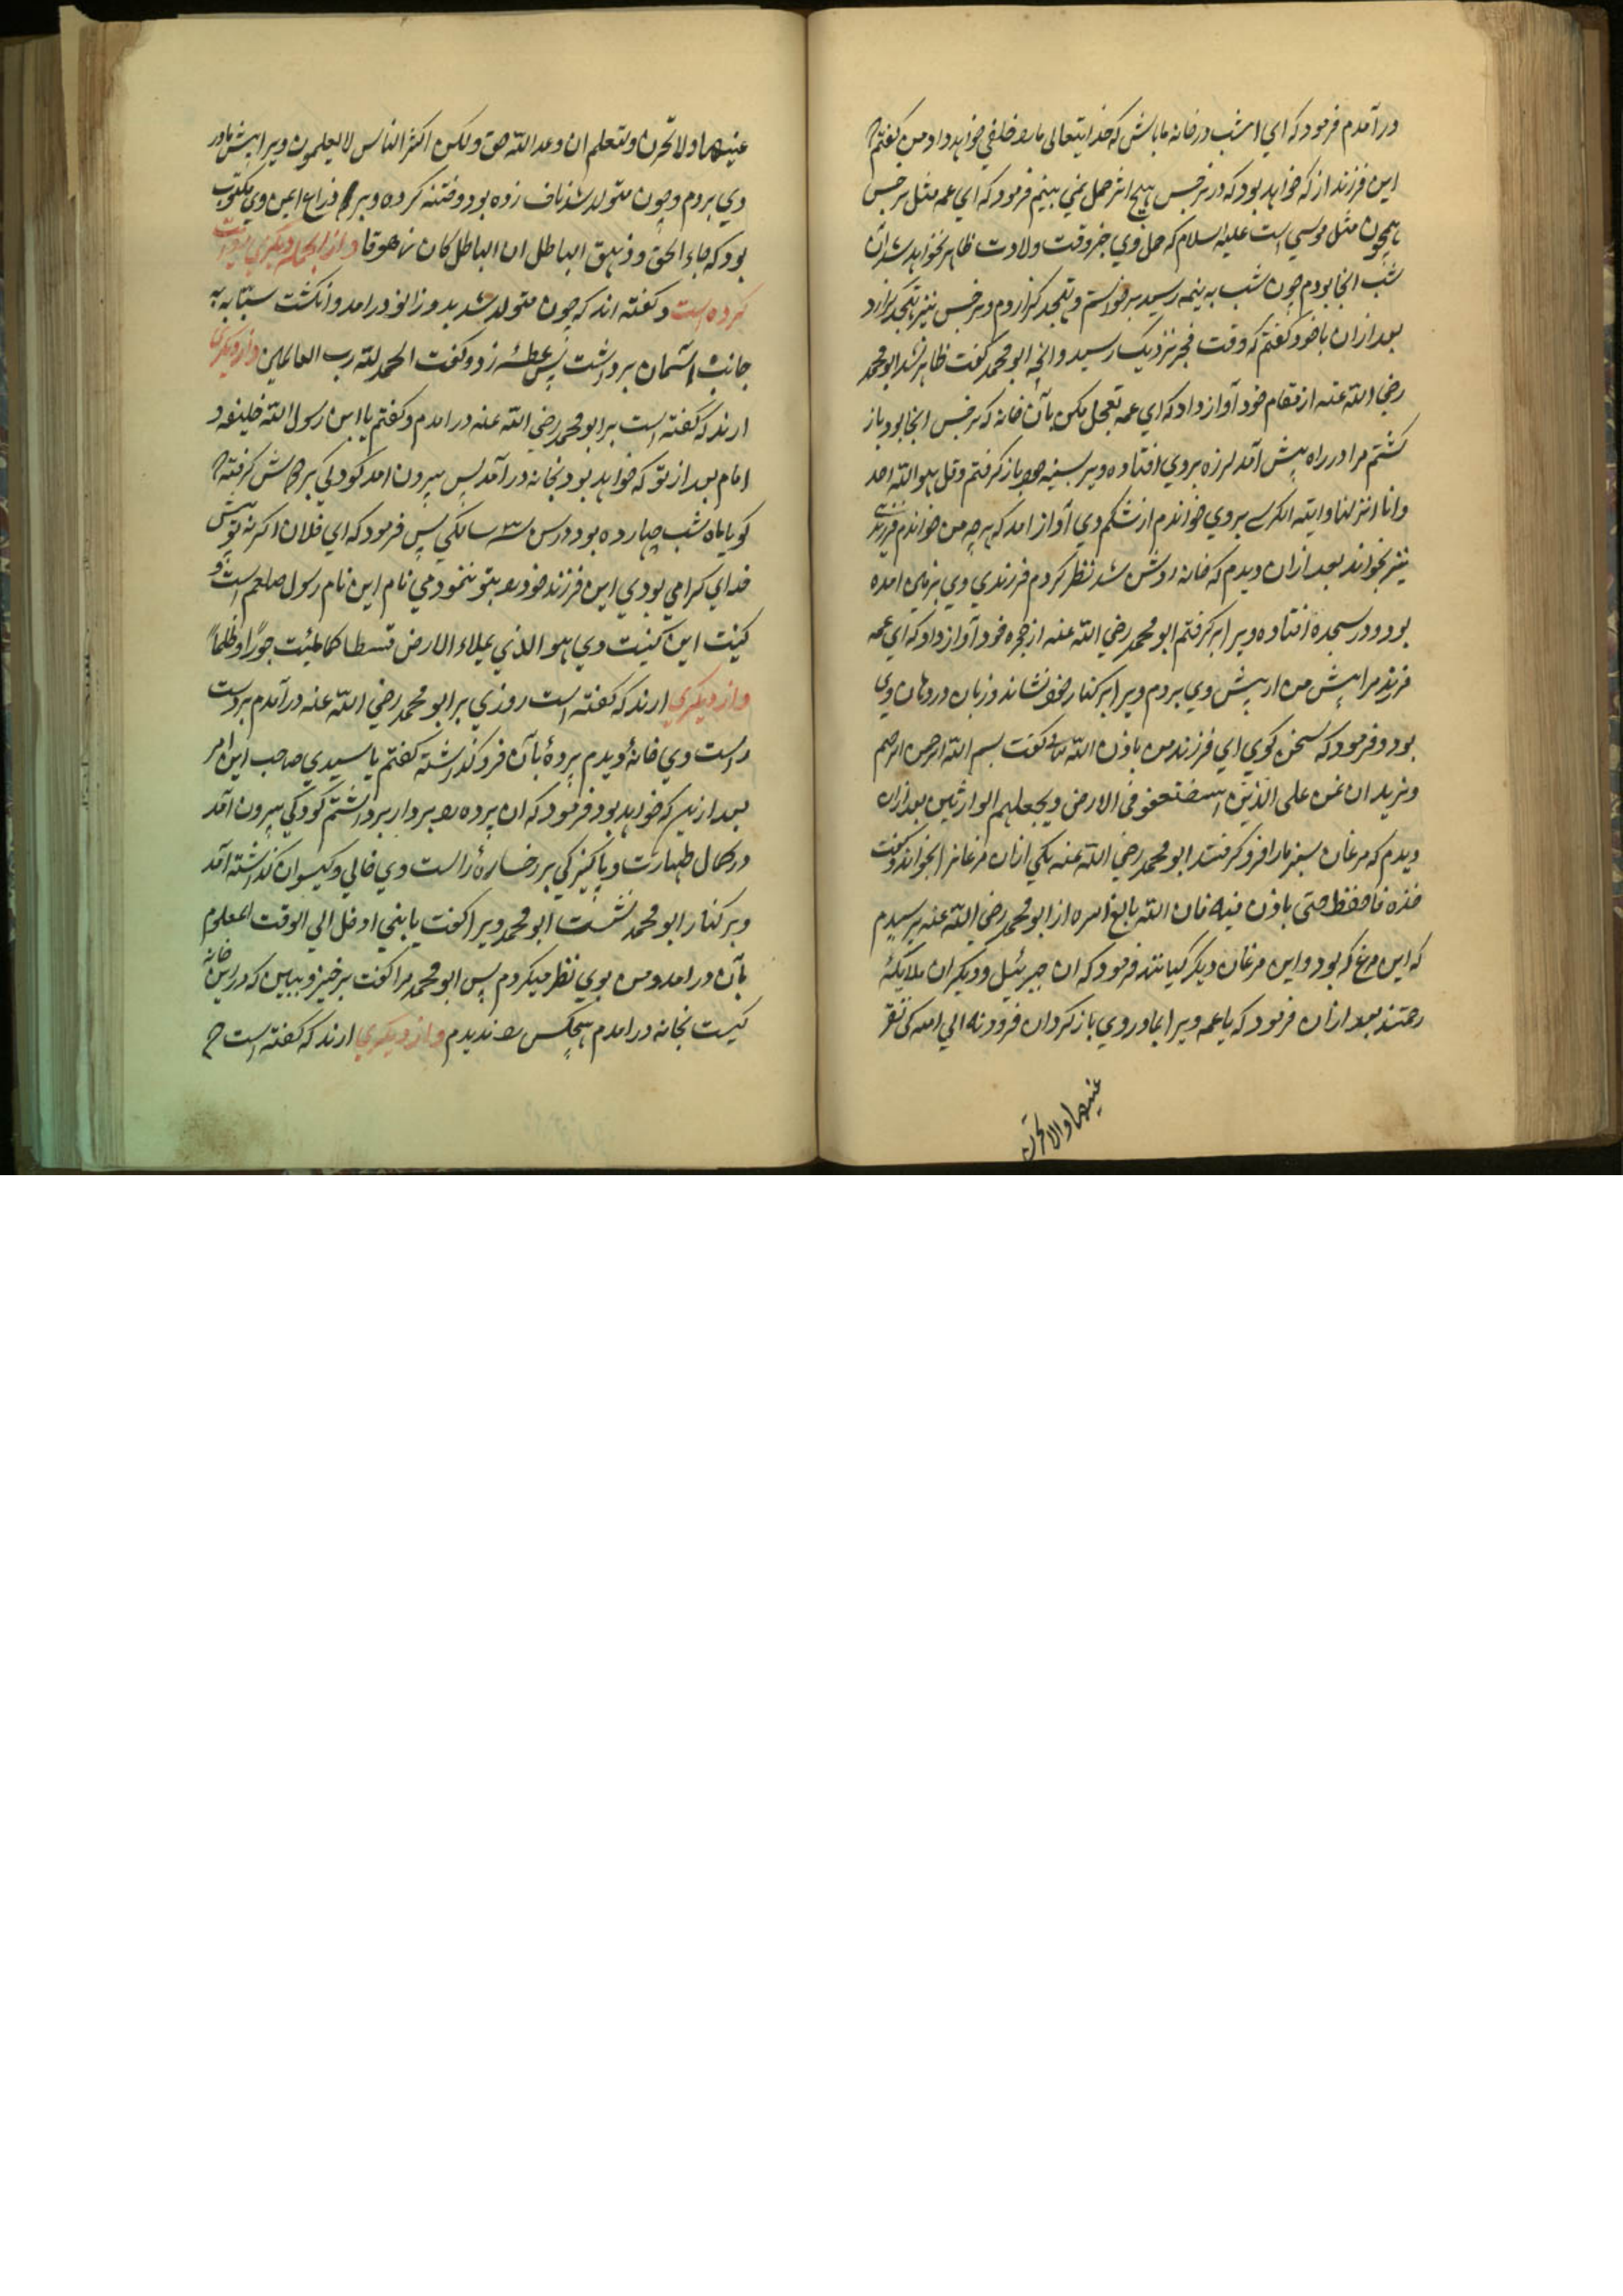 درآمدم فرمود که ای امشب درخانه ما باش که خدایتعالی مارا خلفی خواهد داد من گفتم
این فرزند از که خواهد بود که در نرجس هیچ اثر حمل نمی بینم فرمود که ای عمه مثل نرجس
همچون مثل موسی است علیه السلام که حمل وی جز وقت ولادت ظاهر نخواهد شد آن
شب انجا بودم چون شب به نیمه رسید برخواستم و تهجد گزاردم و نرجس نیز تهجد گزارد
بعد ازان باخود گفتم که وقت فجر نزدیک رسید و انچه ابو محمد گفت ظاهر نشد ابو محمد
رضی الله عنه از مقام خود آواز داد که ای عمه تعجیل مکن بآن خانه که نرجس انجا بود باز
گشتم مرا در راه پیش آمد لرزه بروی افتاده ویرا بسینه خود باز گرفتم و قل هو الله احد
و انا انزلنا و ایته الکرسی بروی خواندم از شکم وی آواز امد که هرچه من خواندم فرزند
نیز بخواند بعد ازان دیدم که خانه روشن شد نظر کردم فرزندی وی بزمین امده
بود و در سجده افتاده ویرا برگرفتم ابو محمد رضی الله عنه از حجره خود آواز داد که ای عمه
فرزند مرا پیش من ار پیش وی بردم ویرا بر کنار خود نشاند و زبان در دهان وی
بود و فرمود که سخن گوی ای فرزند من باذن الله تعالی گفت بسم الله الرحمن الرحیم
و نرید ان نمن علی الذین استضعفو فی الارض و نجعلهم الوارثین بعد ازان
دیدم که مرغان سبز مارا فرو گرفتند ابو محمد رضی الله عنه یکی ازان مرغانرا بخواند و گفت
خذه فاحفظ حتی یاذن فیه فان الله بالغ امره از ابو محمد رضی الله عنه پرسیدم
که این مرغ که بود و این مرغان دیگر کیانند فرمود که ان جبرئیل و دیگران ملایکهٔ
رحمتند بعد ازان فرمود که یا عمه ویرا بمادر وی باز گردان فرودنه الی امه کی تقر
عینهما ولا تحزن
عینهما ولا تحزن ولتعلم ان وعد الله حق ولکن اکثر الناس لا یعلمون ویرا پیش مادر
وی بردم و چون متولد شد ناف زده بود و ختنه کرده و بر ذراع ایمن وی مکتوب
بود که جاء الحق و زهق الباطل ان الباطل کان زهوقا و از انجمله دیگری روایت
کرده است و گفته اند که چون متولد شد بدو زانو درامد و انگشت سبابه به
جانب آسمان برداشت پس عطسهٔ زد و گفت الحمد لله رب العالمین و از دیگری
ارند که گفته است بر ابو محمد رضی الله عنه درامدم و گفتم یا ابن رسول الله خلیفه و
امام بعد از تو که خواهد بود بخانه درآمد پس بیرون امد کودکی بر دوش گرفته
گویا ماه شب چهارده بود در سن سه سالگی پس فرمود که ای فلان اگر نه تو پیش
خدای گرامی بودی این فرزند خود را بتو ننمودمی نام این نام رسول صلعم است و
کنیت این کنیت وی هو الذی یملاء الارض قسطا کما ملئت جورًا و ظلمًا
و از دیگری ارند که گفته است روزی بر ابو محمد رضی الله عنه درآمدم بر دست
راست وی خانهٔ دیدم پردهٔ بآن فرو گذاشته گفتم یا سیدی صاحب این امر
بعد ازین که خواهد بود فرمود که ان پرده را بردار برداشتم کودکی بیرون آمد
در کمال طهارت و پاکیزگی بر رخسارهٔ راست وی خالی و گیسوان گذاشته آمد
و بر کنار ابو محمد نشست ابو محمد ویرا گفت یا بنی ادخل الی الوقت المعلوم
بآن درامد و من بوی نظر میکردم پس ابو محمد مرا گفت برخیز و ببین که در این خانه
کیست بخانه درامدم هیچکس را ندیدم و از دیگری ارند که گفته است